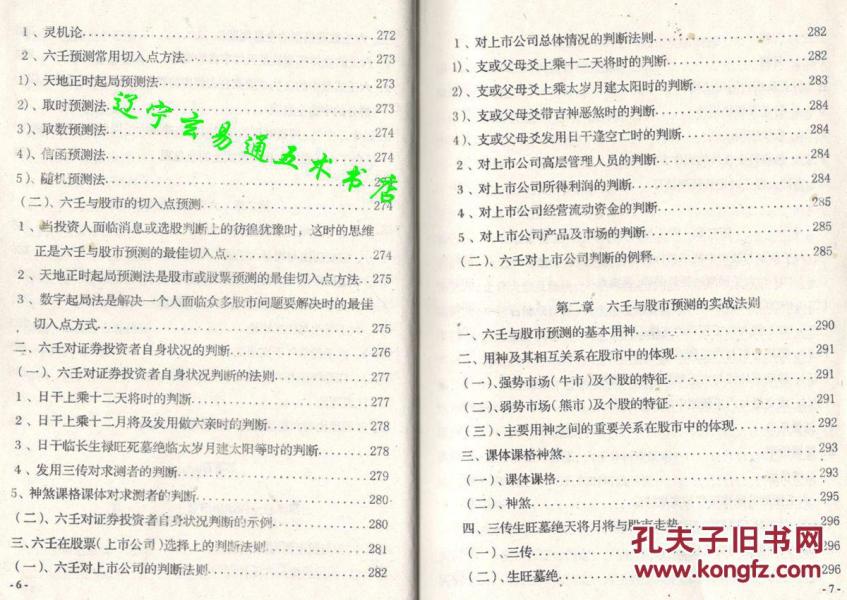 1、灵机论 272
2、六壬预测常用切入点方法 273
1)、天地正时起局预测法 273
2)、取时预测法 273
3)、取数预测法 274
4)、信函预测法 274
5)、随机预测法
(二)、六壬与股市的切入点预测 274
1、当投资人面临消息或选股判断上的彷徨犹豫时，这时的思维
正是六壬与股市预测的最佳切入点 274
2、天地正时起局预测法是股市或股票预测的最佳切入点方法 275
3、数字起局法是解决一个人面临众多股市问题要解决时的最佳
切入点方式 275
二、六壬对证券投资者自身状况的判断 276
(一)、六壬对证券投资者自身状况判断的法则 277
1、日干上乘十二天将时的判断 277
2、日干上乘十二月将及发用做六亲时的判断 278
3、日干临长生禄旺死墓绝临太岁月建太阳等时的判断 278
4、发用三传对求测者的判断 279
5、神煞课格课体对求测者的判断 280
(二)、六壬对证券投资者自身状况判断的示例 280
三、六壬在股票(上市公司)选择上的判断法则 281
(一)、六壬对上市公司的判断法则 282
-6-
辽宁玄易通五术书店
1、对上市公司总体情况的判断法则 282
1)、支或父母爻上乘十二天将时的判断 282
2)、支或父母爻上乘太岁月建太阳时的判断 283
3)、支或父母爻带吉神恶煞时的判断 284
4)、支或父母爻发用日干逢空亡时的判断 284
2、对上市公司高层管理人员的判断 284
3、对上市公司所得利润的判断 284
4、对上市公司经营流动资金的判断 285
5、对上市公司产品及市场的判断 285
(二)、六壬对上市公司判断的例释 285
第二章 六壬与股市预测的实战法则
一、六壬与股市预测的基本用神 290
二、用神及其相互关系在股市中的体现 291
(一)、强势市场(牛市)及个股的特征 291
(二)、弱势市场(熊市)及个股的特征 291
(三)、主要用神之间的重要关系在股市中的体现 292
三、课体课格神煞 293
(一)、课体课格 293
(二)、神煞 295
四、三传生旺墓绝天将月将与股市走势 296
(一)、三传 296
(二)、生旺墓绝 296
-7-
孔夫子旧书网
www.kongfz.com